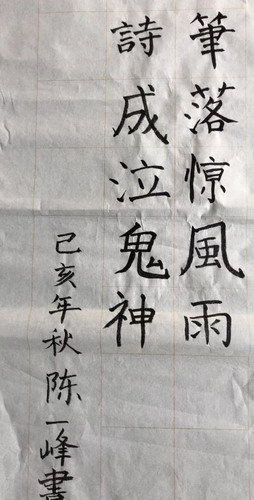 筆落惊風雨
詩成泣鬼神
己亥年秋陈一峰書